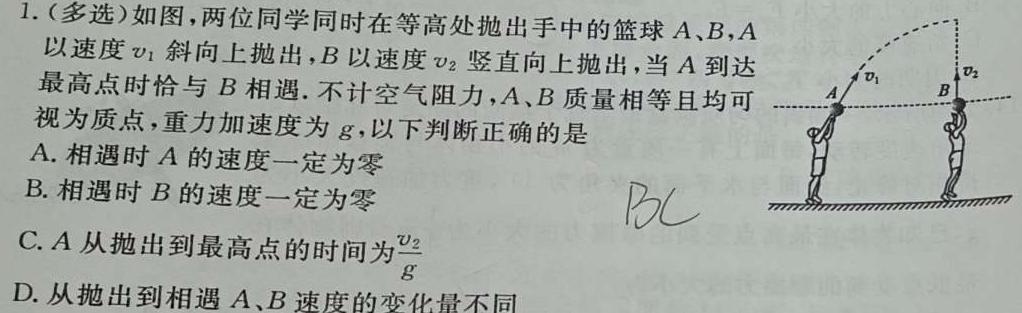 1.(多选)如图,两位同学同时在等高处抛出手中的篮球 A、B,A
以速度 v₁ 斜向上抛出,B 以速度 v₂ 竖直向上抛出,当 A 到达
最高点时恰与 B 相遇. 不计空气阻力,A、B 质量相等且均可
视为质点,重力加速度为 g,以下判断正确的是
A. 相遇时 A 的速度一定为零
B. 相遇时 B 的速度一定为零
C. A 从抛出到最高点的时间为 v₂/g
D. 从抛出到相遇 A、B 速度的变化量不同
BC
A
v₁
B
v₂